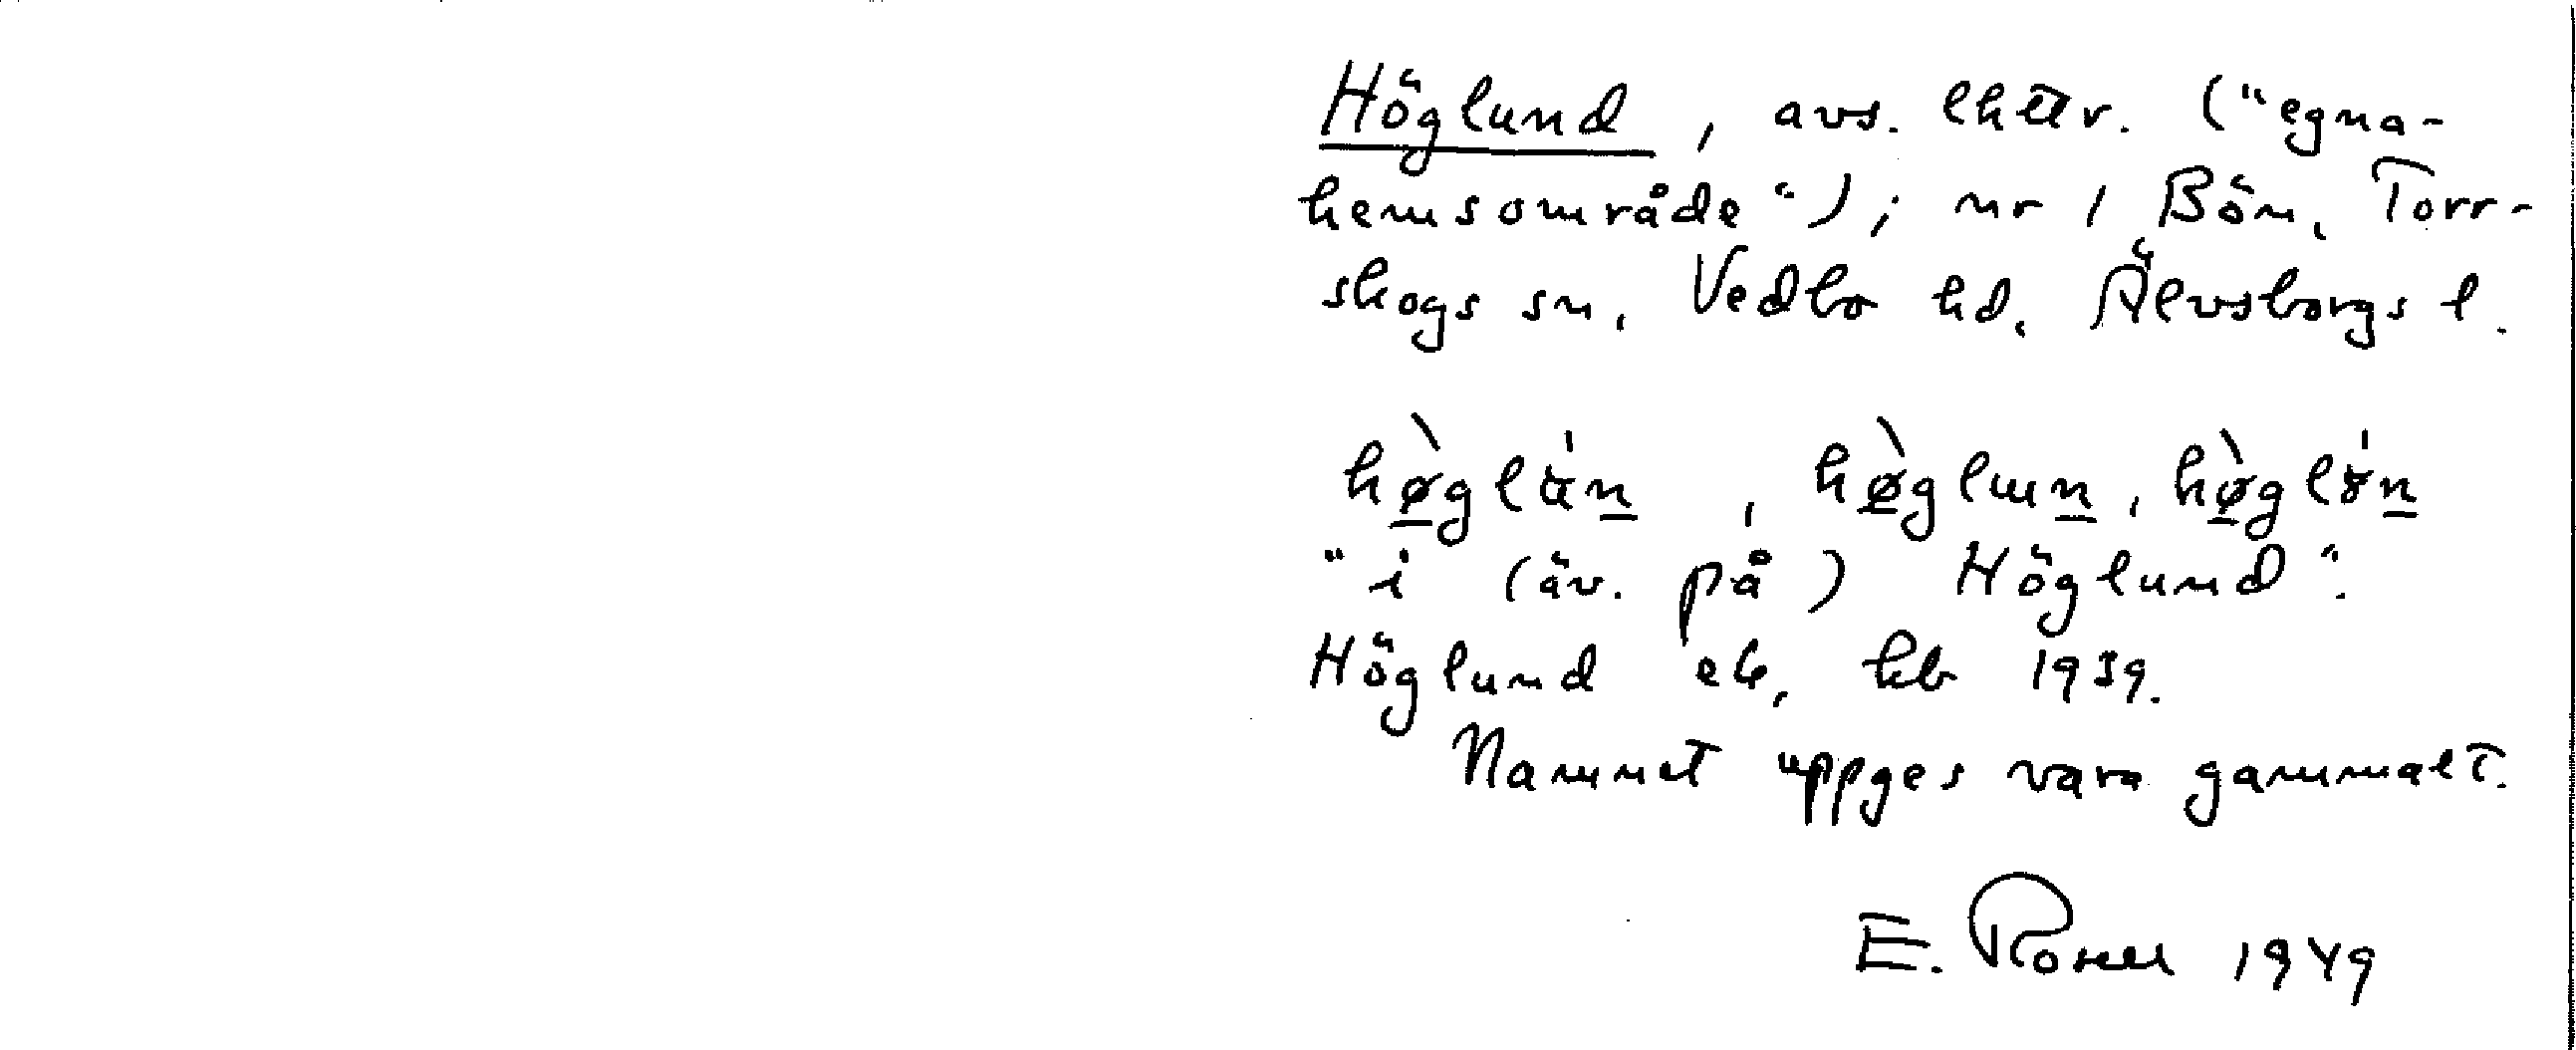 Höglund, avs. lhetr. ("egna-
hemsområde"); nr 1 Bön, Torr-
skogs sn, Vedbo hd, Älvsborgs l.
"i (äv. på) Höglund".
Höglund eb, kb 1939.
Namnet uppges vara gammalt.
E. Rosell 1949